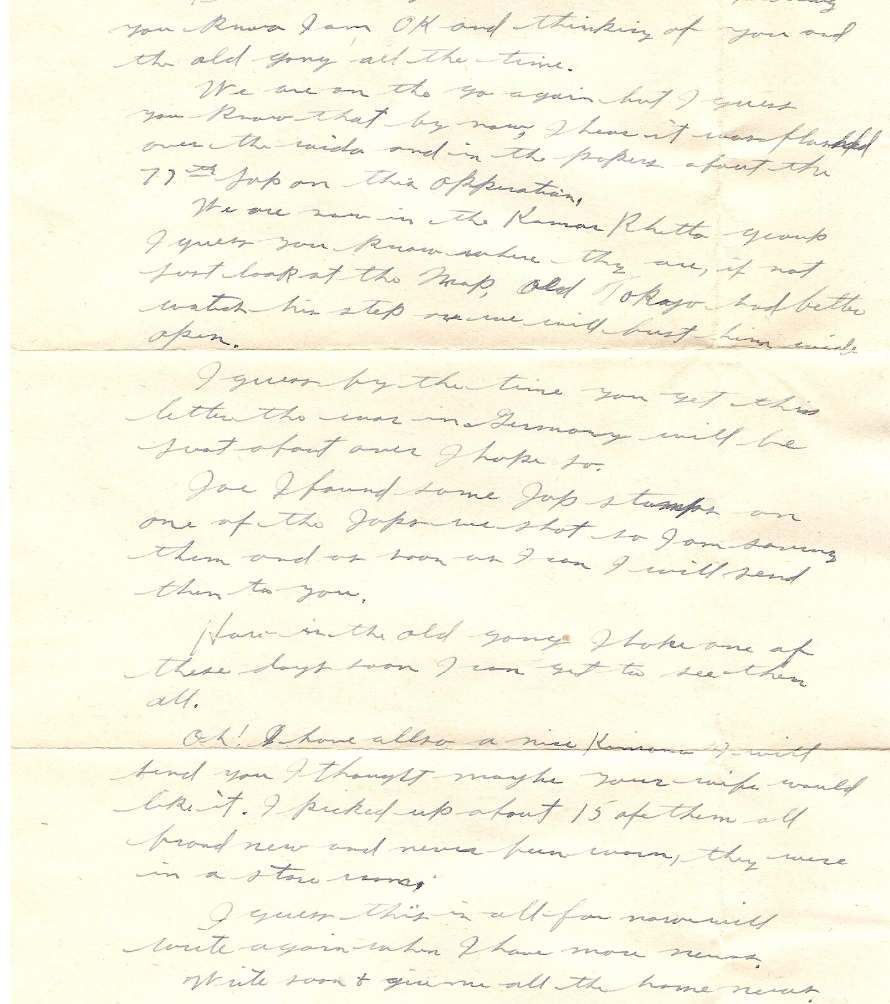 you know I am OK and thinking of you and
the old gang all the time.
We are on the go again but I guess
you know that by now, I hear it was flashed
over the wide and in the papers about the
77th Jap on this opperation,
We are now in the Kamar Rhetta group
I guess you know where they are, if not
just look at the Map, Old Tokajo had better
watch his step or we will bust him wide
open.
I guess by the time you get this
letter the war in Germany will be
just about over I hope so.
Joe I found some Jap stamps on
one of the Japs we shot so I am saving
them and as soon as I can I will send
them to you.
How is the old gang I hope one of
these days soon I can get to see them
all.
Oh! I have allso a nice Kimono I will
send you I thought maybe your wife would
like it. I picked up about 15 of them all
brand new and never been worn, they were
in a store room.
I guess this is all for now will
write again when I have more news.
Write soon & give me all the home news.